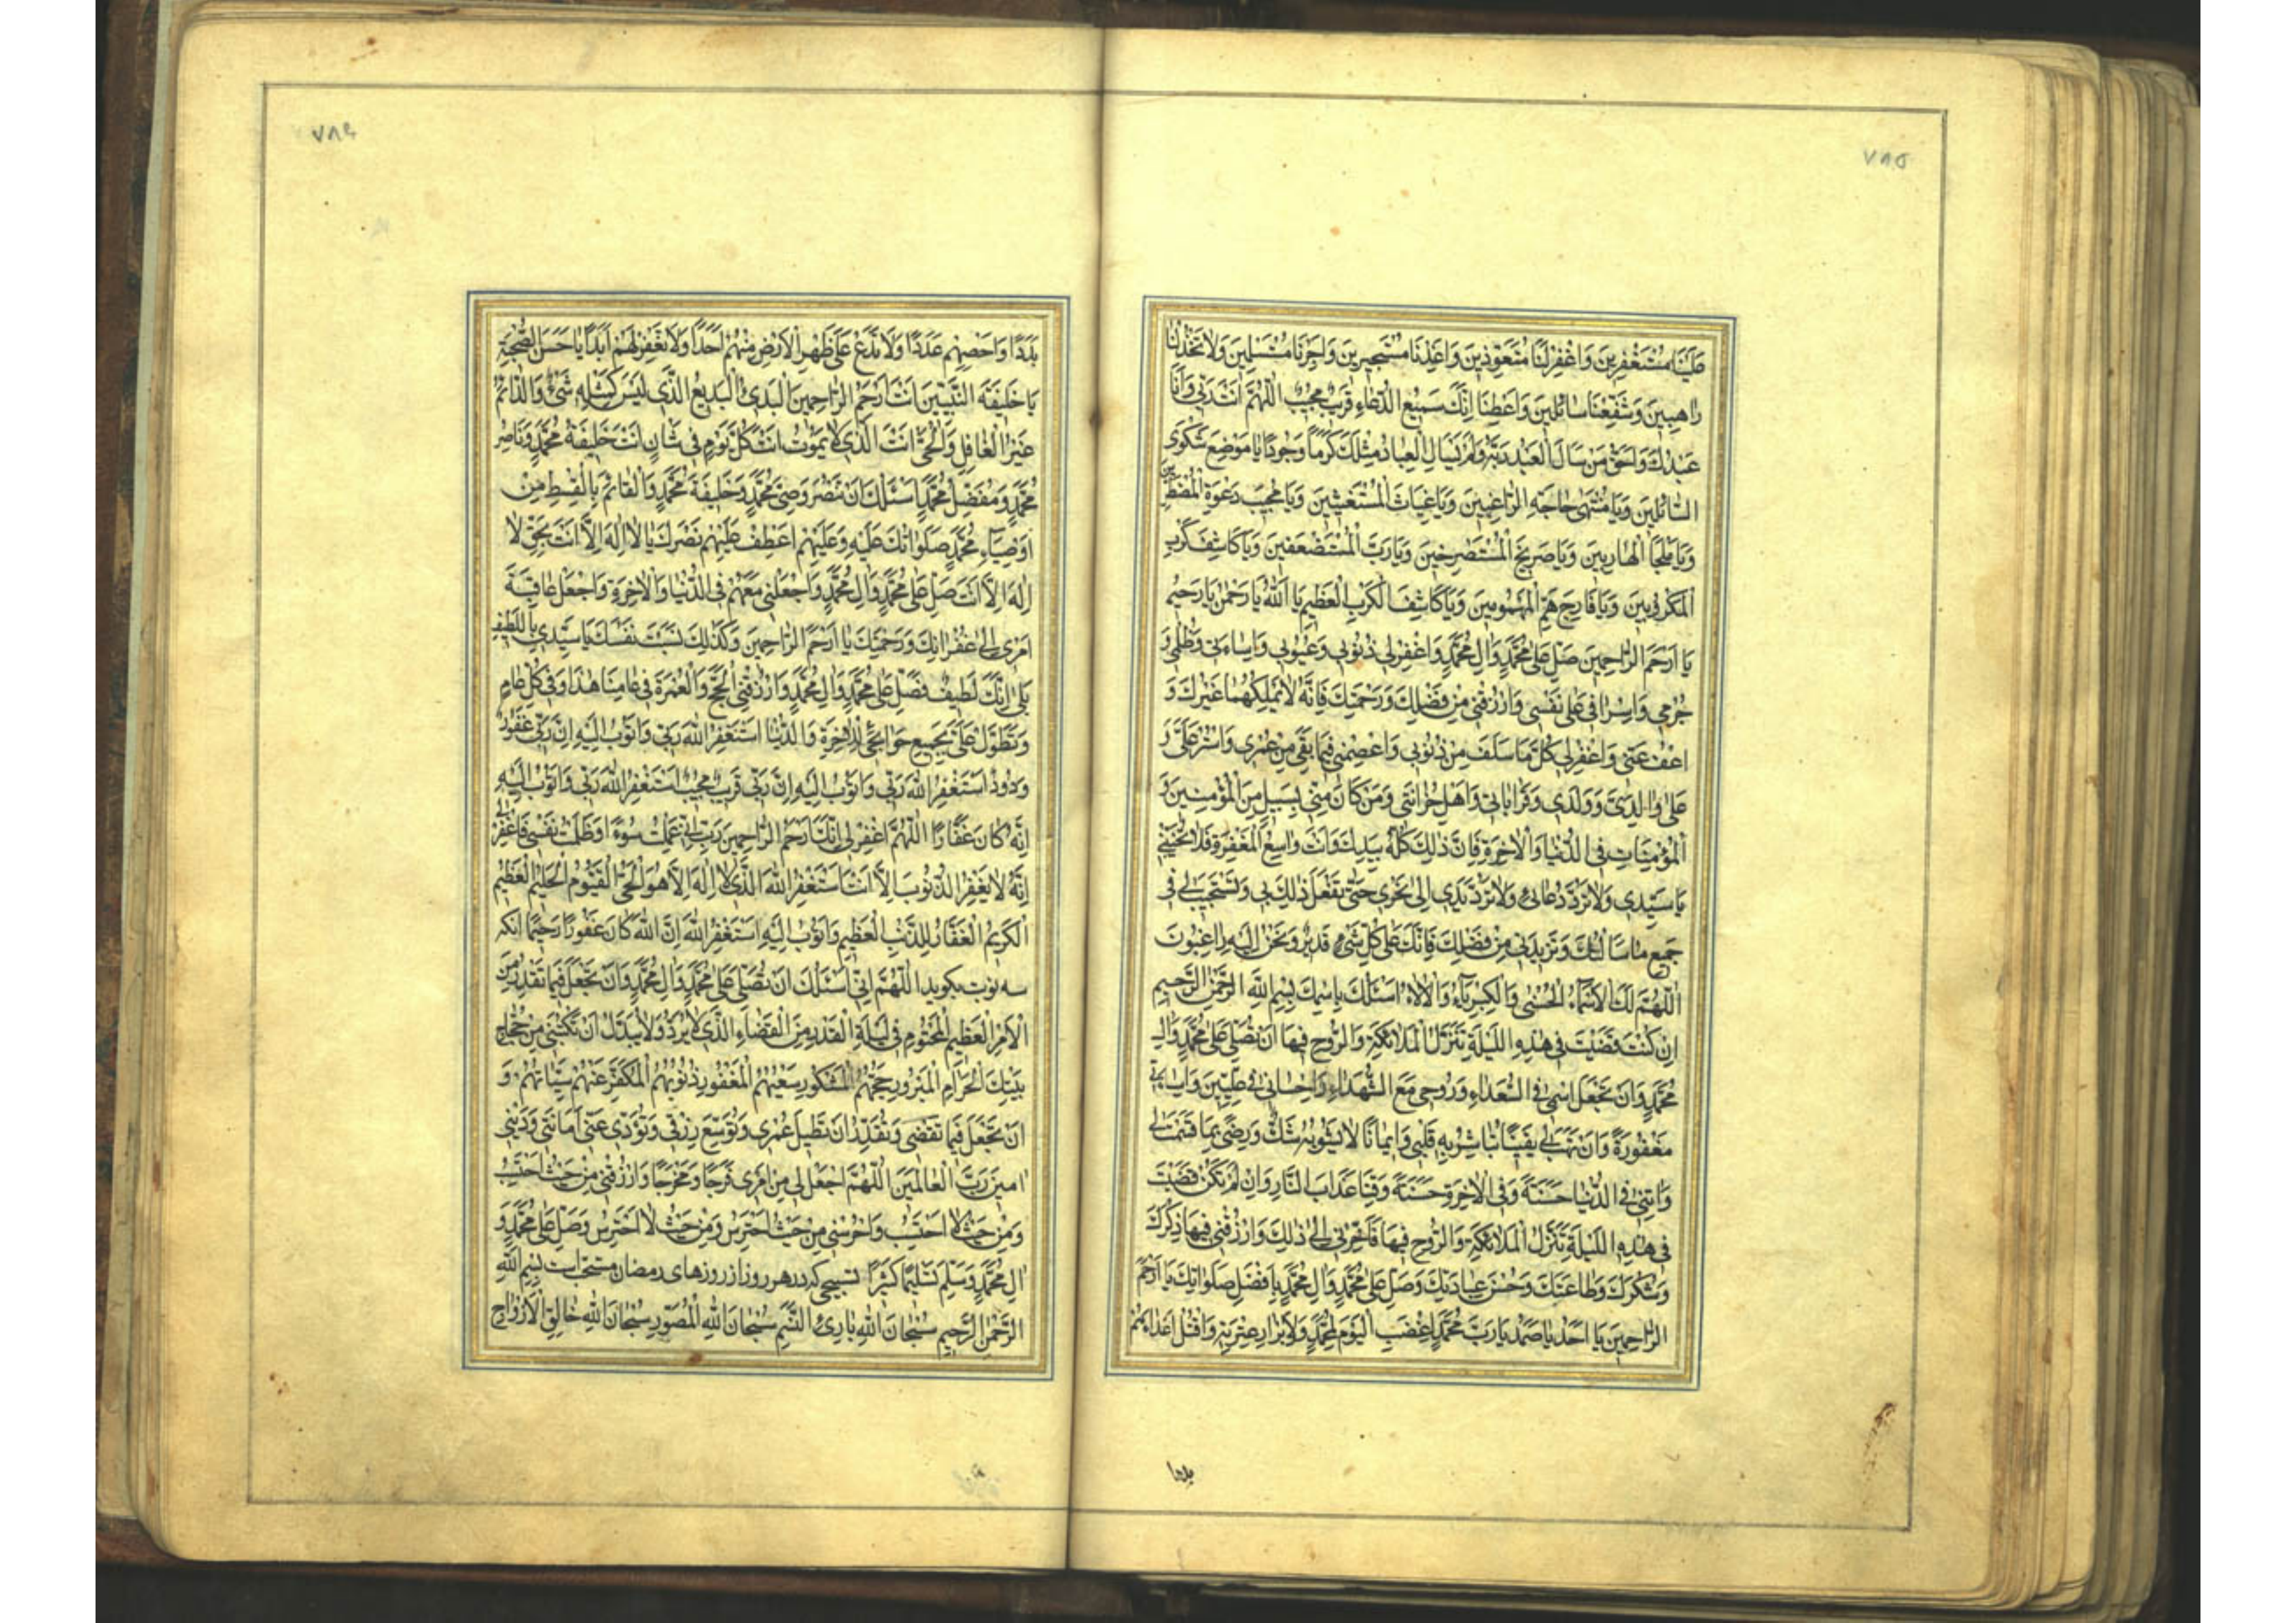 ٧٨٥
عَلَيْنَا مُسْتَغْفِرِينَ وَاغْفِرْ لَنَا مُتَعَوِّذِينَ وَاَعِذْنَا مُسْتَجِيرِينَ وَاَجِرْنَا مُسْتَسْلِمِينَ وَلَا تَخْذُلْنَا
رَاهِبِينَ وَشَفِّعْنَا سَائِلِينَ وَاَعْطِنَا اِنَّكَ سَمِيعُ الدُّعَاءِ قَرِيبٌ مُجِيبٌ اَللّٰهُمَّ اَنْتَ رَبِّي وَاَنَا
عَبْدُكَ وَاَحَقُّ مَنْ سَاَلَ الْعَبْدُ رَبَّهُ وَلَمْ يَسْاَلِ الْعِبَادُ مِثْلَكَ كَرَماً وَجُوداً يَا مَوْضِعَ شَكْوَى
السَّائِلِينَ وَيَا مُنْتَهٰى حَاجَةِ الرَّاغِبِينَ وَيَا غِيَاثَ الْمُسْتَغِيثِينَ وَيَا مُجِيبَ دَعْوَةِ الْمُضْطَرِّينَ
وَيَا مَلْجَاَ الْهَارِبِينَ وَيَا صَرِيخَ الْمُسْتَصْرِخِينَ وَيَا رَبَّ الْمُسْتَضْعَفِينَ وَيَا كَاشِفَ كَرْبِ
الْمَكْرُوبِينَ وَيَا فَارِجَ هَمِّ الْمَهْمُومِينَ وَيَا كَاشِفَ الْكَرْبِ الْعَظِيمِ يَا اَللّٰهُ يَا رَحْمٰنُ يَا رَحِيمُ
يَا اَرْحَمَ الرَّاحِمِينَ صَلِّ عَلٰى مُحَمَّدٍ وَاٰلِ مُحَمَّدٍ وَاغْفِرْ لِي ذُنُوبِي وَعُيُوبِي وَاِسَاءَتِي وَظُلْمِي وَ
جُرْمِي وَاِسْرَافِي عَلٰى نَفْسِي وَارْزُقْنِي مِنْ فَضْلِكَ وَرَحْمَتِكَ فَاِنَّهُ لَا يَمْلِكُهُمَا غَيْرُكَ وَ
اعْفُ عَنِّي وَاغْفِرْ لِي كُلَّ مَا سَلَفَ مِنْ ذُنُوبِي وَاعْصِمْنِي فِيمَا بَقِيَ مِنْ عُمْرِي وَاسْتُرْ عَلَيَّ وَ
عَلٰى وَالِدَيَّ وَوَلَدِي وَقَرَابَاتِي وَاَهْلِ حُزَانَتِي وَمَنْ كَانَ مِنِّي بِسَبِيلٍ مِنَ الْمُؤْمِنِينَ وَ
الْمُؤْمِنَاتِ فِي الدُّنْيَا وَالْاٰخِرَةِ فَاِنَّ ذٰلِكَ كُلَّهُ بِيَدِكَ وَاَنْتَ وَاسِعُ الْمَغْفِرَةِ فَلَا تُخَيِّبْنِي
يَا سَيِّدِي وَلَا تَرُدَّ دُعَائِي وَلَا تَرُدَّ يَدِي اِلٰى نَحْرِي حَتّٰى تَفْعَلَ ذٰلِكَ بِي وَتَسْتَجِيبَ لِي فِي
جَمِيعِ مَا سَاَلْتُكَ وَتَزِيدَنِي مِنْ فَضْلِكَ فَاِنَّكَ عَلٰى كُلِّ شَيْءٍ قَدِيرٌ وَنَحْنُ اِلَيْهِ رَاغِبُونَ
اَللّٰهُمَّ لَكَ الْاَسْمَاءُ الْحُسْنٰى وَالْكِبْرِيَاءُ وَالْاٰلَاءُ اَسْئَلُكَ بِاسْمِكَ بِسْمِ اللّٰهِ الرَّحْمٰنِ الرَّحِيمِ
اِنْ كُنْتَ قَضَيْتَ فِي هٰذِهِ اللَّيْلَةِ تَنَزُّلَ الْمَلَائِكَةِ وَالرُّوحِ فِيهَا اَنْ تُصَلِّيَ عَلٰى مُحَمَّدٍ وَاٰلِ
مُحَمَّدٍ وَاَنْ تَجْعَلَ اسْمِي فِي السُّعَدَاءِ وَرُوحِي مَعَ الشُّهَدَاءِ وَاِحْسَانِي فِي عِلِّيِّينَ وَاِسَاءَتِي
مَغْفُورَةً وَاَنْ تَهَبَ لِي يَقِيناً تُبَاشِرُ بِهِ قَلْبِي وَاِيمَاناً لَا يَشُوبُهُ شَكٌّ وَرِضًى بِمَا قَسَمْتَ لِي
وَاٰتِنِي فِي الدُّنْيَا حَسَنَةً وَفِي الْاٰخِرَةِ حَسَنَةً وَقِنَا عَذَابَ النَّارِ وَاِنْ لَمْ تَكُنْ قَضَيْتَ
فِي هٰذِهِ اللَّيْلَةِ تَنَزُّلَ الْمَلَائِكَةِ وَالرُّوحِ فِيهَا فَاَخِّرْنِي اِلٰى ذٰلِكَ وَارْزُقْنِي فِيهَا ذِكْرَكَ
وَشُكْرَكَ وَطَاعَتَكَ وَحُسْنَ عِبَادَتِكَ وَصَلِّ عَلٰى مُحَمَّدٍ وَاٰلِ مُحَمَّدٍ بِاَفْضَلِ صَلَوَاتِكَ يَا اَرْحَمَ
الرَّاحِمِينَ يَا اَحَدُ يَا صَمَدُ يَا رَبَّ مُحَمَّدٍ اِغْضَبِ الْيَوْمَ لِمُحَمَّدٍ وَلِاَبْرَارِ عِتْرَتِهِ وَاقْتُلْ اَعْدَاءَهُمْ
بددا
٧٨٤
بَدَداً وَاَحْصِهِمْ عَدَداً وَلَا تَدَعْ عَلٰى ظَهْرِ الْاَرْضِ مِنْهُمْ اَحَداً وَلَا تَغْفِرْ لَهُمْ اَبَداً يَا حَسَنَ الصُّحْبَةِ
يَا خَلِيفَةَ النَّبِيِّينَ اَنْتَ اَرْحَمُ الرَّاحِمِينَ الْبَدِيءُ الْبَدِيعُ الَّذِي لَيْسَ كَمِثْلِهِ شَيْءٌ وَالدَّائِمُ
غَيْرُ الْغَافِلِ وَالْحَيُّ اَنْتَ الَّذِي لَا يَمُوتُ اَنْتَ كُلَّ يَوْمٍ فِي شَاْنٍ اَنْتَ خَلِيفَةُ مُحَمَّدٍ وَنَاصِرُ
مُحَمَّدٍ وَمُفَضِّلُ مُحَمَّدٍ اَسْئَلُكَ اَنْ تَنْصُرَ وَصِيَّ مُحَمَّدٍ وَخَلِيفَةَ مُحَمَّدٍ وَالْقَائِمَ بِالْقِسْطِ مِنْ
اَوْصِيَاءِ مُحَمَّدٍ صَلَوَاتُكَ عَلَيْهِ وَعَلَيْهِمْ اِعْطِفْ عَلَيْهِمْ نَصْرَكَ يَا لَا اِلٰهَ اِلَّا اَنْتَ بِحَقِّ لَا
اِلٰهَ اِلَّا اَنْتَ صَلِّ عَلٰى مُحَمَّدٍ وَاٰلِ مُحَمَّدٍ وَاجْعَلْنِي مَعَهُمْ فِي الدُّنْيَا وَالْاٰخِرَةِ وَاجْعَلْ عَاقِبَةَ
اَمْرِي اِلٰى غُفْرَانِكَ وَرَحْمَتِكَ يَا اَرْحَمَ الرَّاحِمِينَ وَكَذٰلِكَ نَسَبْتَ نَفْسَكَ يَا سَيِّدِي بِاللَّطِيفِ
بَلٰى اِنَّكَ لَطِيفٌ فَصَلِّ عَلٰى مُحَمَّدٍ وَاٰلِ مُحَمَّدٍ وَارْزُقْنِي الْحَجَّ وَالْعُمْرَةَ فِي عَامِنَا هٰذَا وَفِي كُلِّ عَامٍ
وَتَطَوَّلْ عَلَيَّ بِجَمِيعِ حَوَائِجِي لِلْاٰخِرَةِ وَالدُّنْيَا اَسْتَغْفِرُ اللّٰهَ رَبِّي وَاَتُوبُ اِلَيْهِ اِنَّ رَبِّي غَفُورٌ
وَدُودٌ اَسْتَغْفِرُ اللّٰهَ رَبِّي وَاَتُوبُ اِلَيْهِ اِنَّ رَبِّي قَرِيبٌ مُجِيبٌ اَسْتَغْفِرُ اللّٰهَ رَبِّي وَاَتُوبُ اِلَيْهِ
اِنَّهُ كَانَ غَفَّاراً اَللّٰهُمَّ اغْفِرْ لِي اِنَّكَ اَرْحَمُ الرَّاحِمِينَ رَبِّ اِنِّي عَمِلْتُ سُوءاً وَظَلَمْتُ نَفْسِي فَاغْفِرْ لِي
اِنَّهُ لَا يَغْفِرُ الذُّنُوبَ اِلَّا اَنْتَ اَسْتَغْفِرُ اللّٰهَ الَّذِي لَا اِلٰهَ اِلَّا هُوَ الْحَيُّ الْقَيُّومُ الْحَلِيمُ الْعَظِيمُ
الْكَرِيمُ الْغَفَّارُ لِلذَّنْبِ الْعَظِيمِ وَاَتُوبُ اِلَيْهِ اَسْتَغْفِرُ اللّٰهَ اِنَّ اللّٰهَ كَانَ غَفُوراً رَحِيماً انكه
سه نوبت بكويد اَللّٰهُمَّ اِنِّي اَسْئَلُكَ اَنْ تُصَلِّيَ عَلٰى مُحَمَّدٍ وَاٰلِ مُحَمَّدٍ وَاَنْ تَجْعَلَ فِيمَا تُقَدِّرُ مِنَ
الْاَمْرِ الْعَظِيمِ الْمَحْتُومِ فِي لَيْلَةِ الْقَدْرِ مِنَ الْقَضَاءِ الَّذِي لَا يُرَدُّ وَلَا يُبَدَّلُ اَنْ تَكْتُبَنِي مِنْ حُجَّاجِ
بَيْتِكَ الْحَرَامِ الْمَبْرُورِ حَجُّهُمْ الْمَشْكُورِ سَعْيُهُمْ الْمَغْفُورِ ذُنُوبُهُمْ الْمُكَفَّرِ عَنْهُمْ سَيِّئَاتُهُمْ وَ
اَنْ تَجْعَلَ فِيمَا تَقْضِي وَتُقَدِّرُ اَنْ تُطِيلَ عُمْرِي وَتُوَسِّعَ رِزْقِي وَتُؤَدِّيَ عَنِّي اَمَانَتِي وَدَيْنِي
اٰمِينَ رَبَّ الْعَالَمِينَ اَللّٰهُمَّ اجْعَلْ لِي مِنْ اَمْرِي فَرَجاً وَمَخْرَجاً وَارْزُقْنِي مِنْ حَيْثُ اَحْتَسِبُ
وَمِنْ حَيْثُ لَا اَحْتَسِبُ وَاحْرُسْنِي مِنْ حَيْثُ اَحْتَرِسُ وَمِنْ حَيْثُ لَا اَحْتَرِسُ وَصَلِّ عَلٰى مُحَمَّدٍ وَ
اٰلِ مُحَمَّدٍ وَسَلِّمْ تَسْلِيماً كَثِيراً تسبيحى كه در هر روز از روزهاى رمضان مستحب است بِسْمِ اللّٰهِ
الرَّحْمٰنِ الرَّحِيمِ سُبْحَانَ اللّٰهِ بَارِئِ النَّسَمِ سُبْحَانَ اللّٰهِ الْمُصَوِّرِ سُبْحَانَ اللّٰهِ خَالِقِ الْاَزْوَاجِ